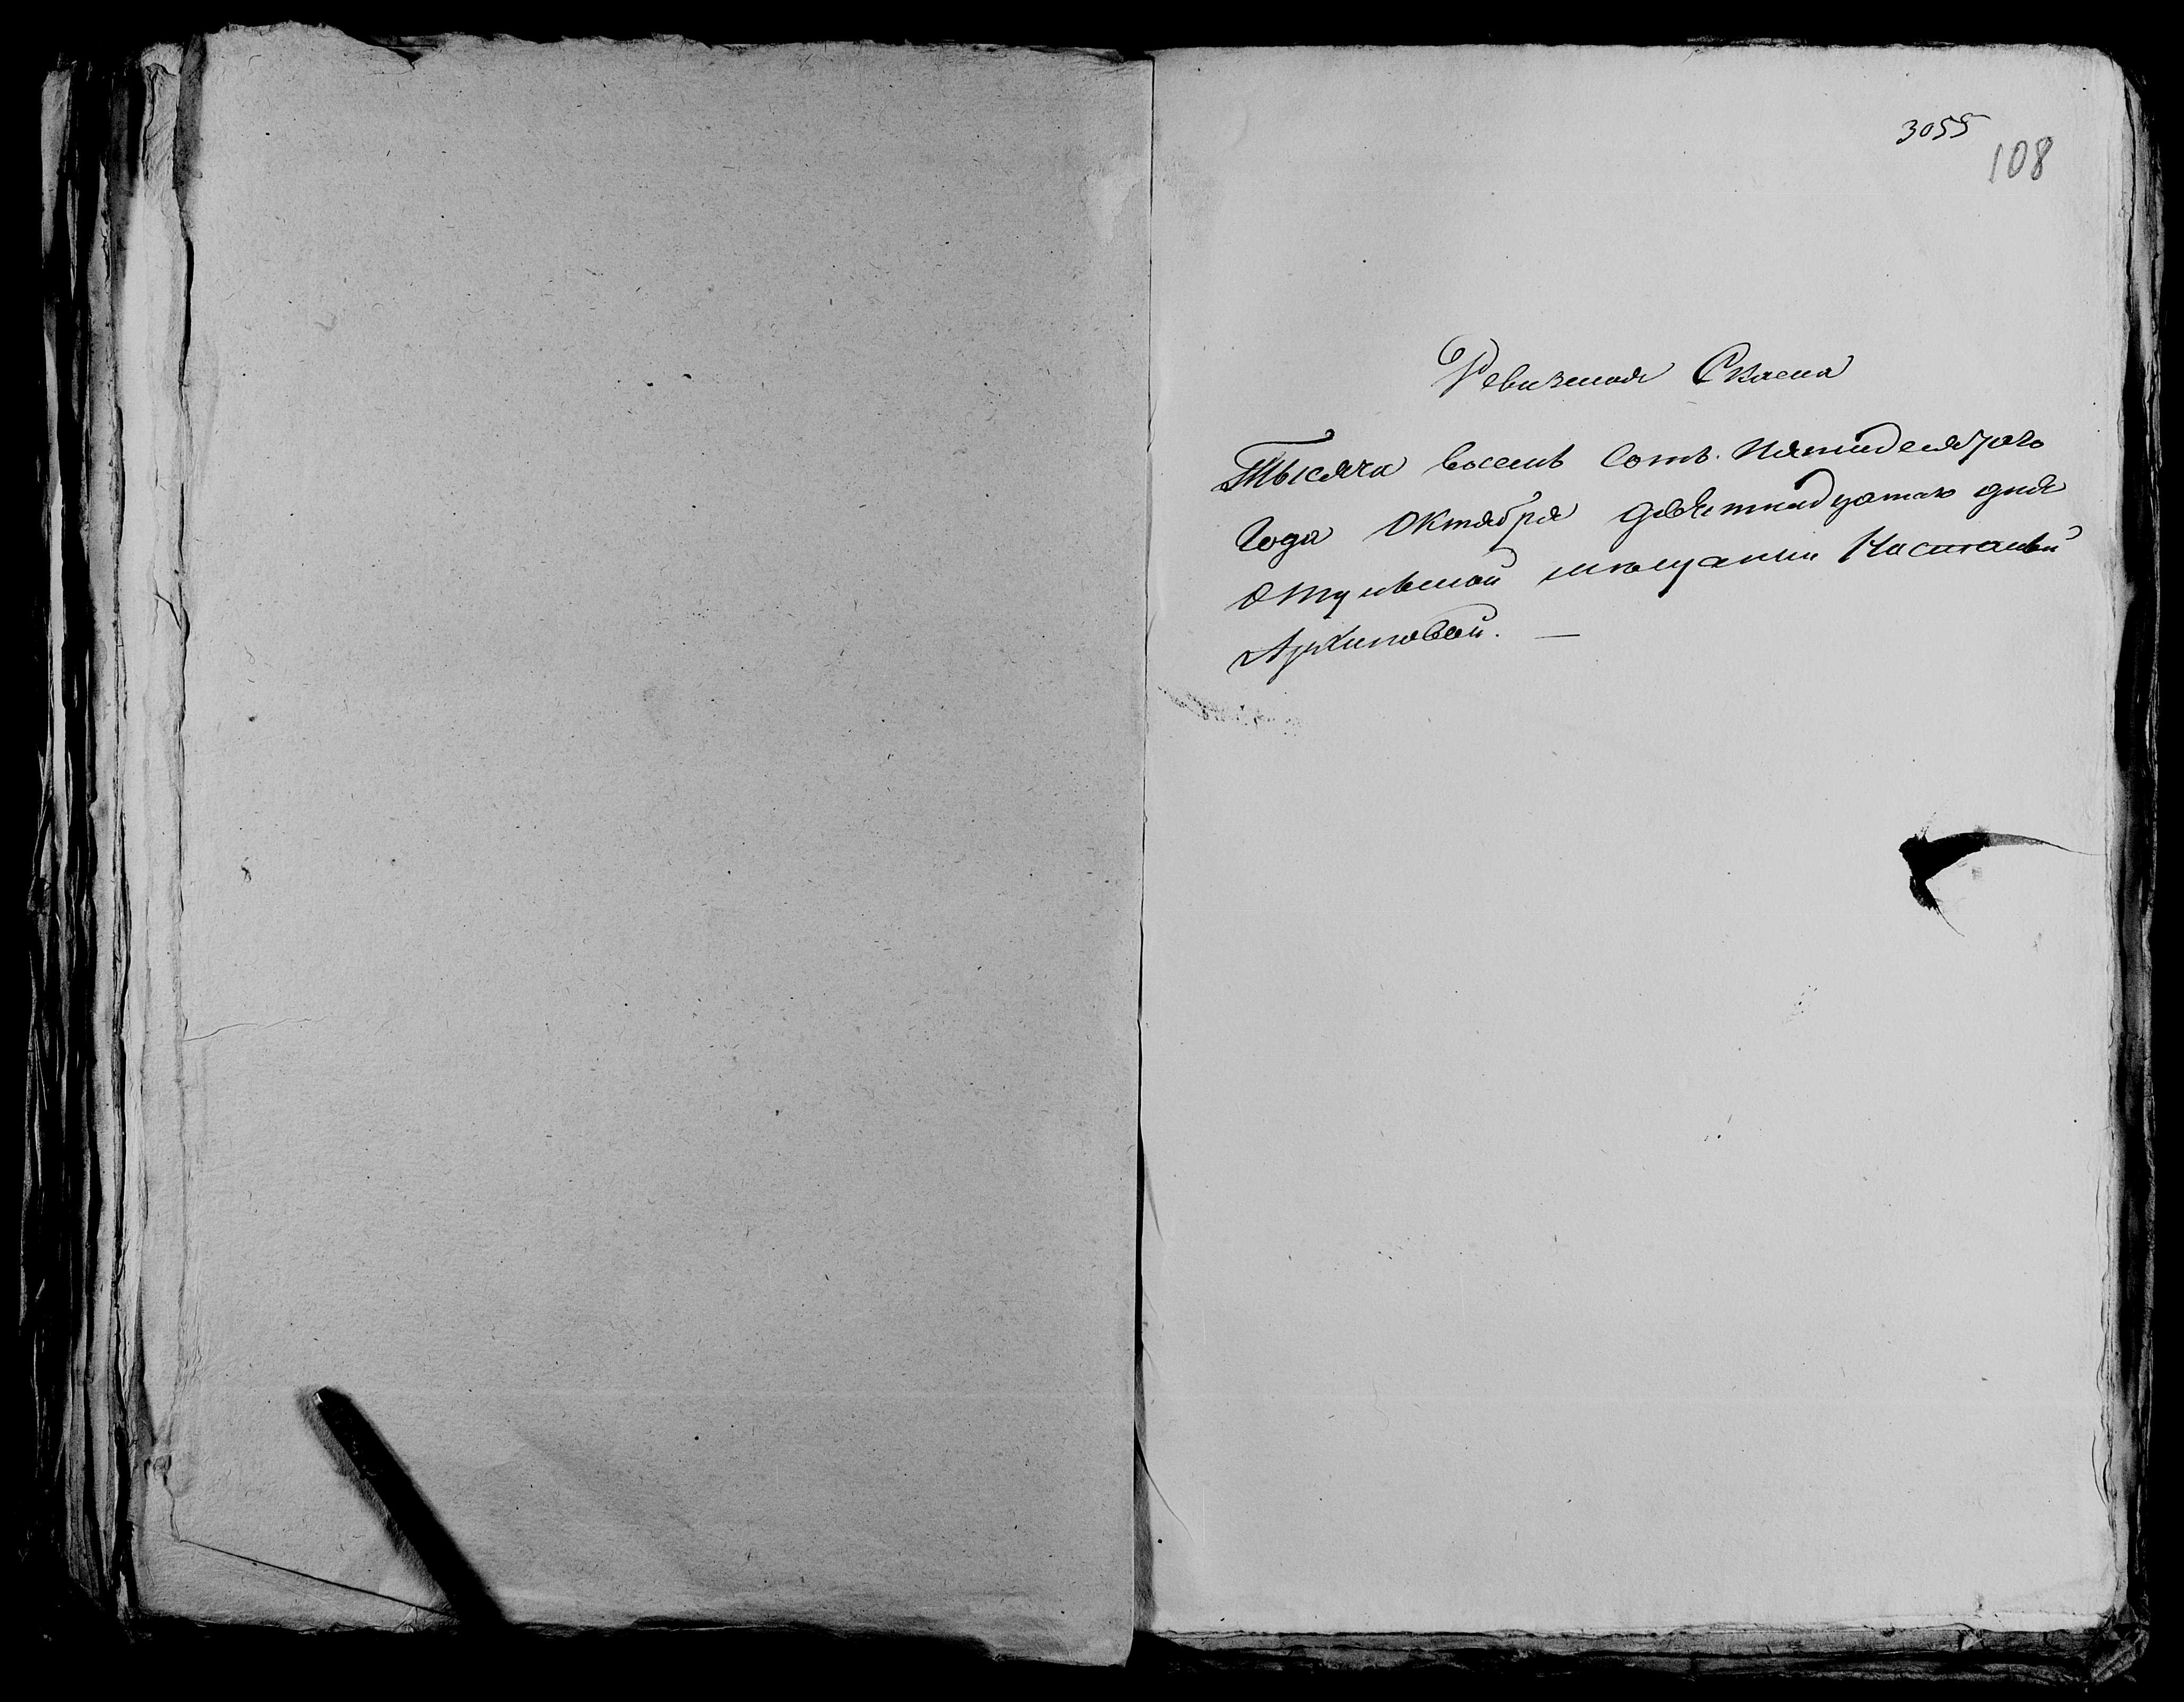 3055
108
Ревизская Сказка
Тысяча восемь сотъ пятидесятого
Года Октября девятнадцатаго дня
отульской мѣщанки Настасьи
Архиповой. —